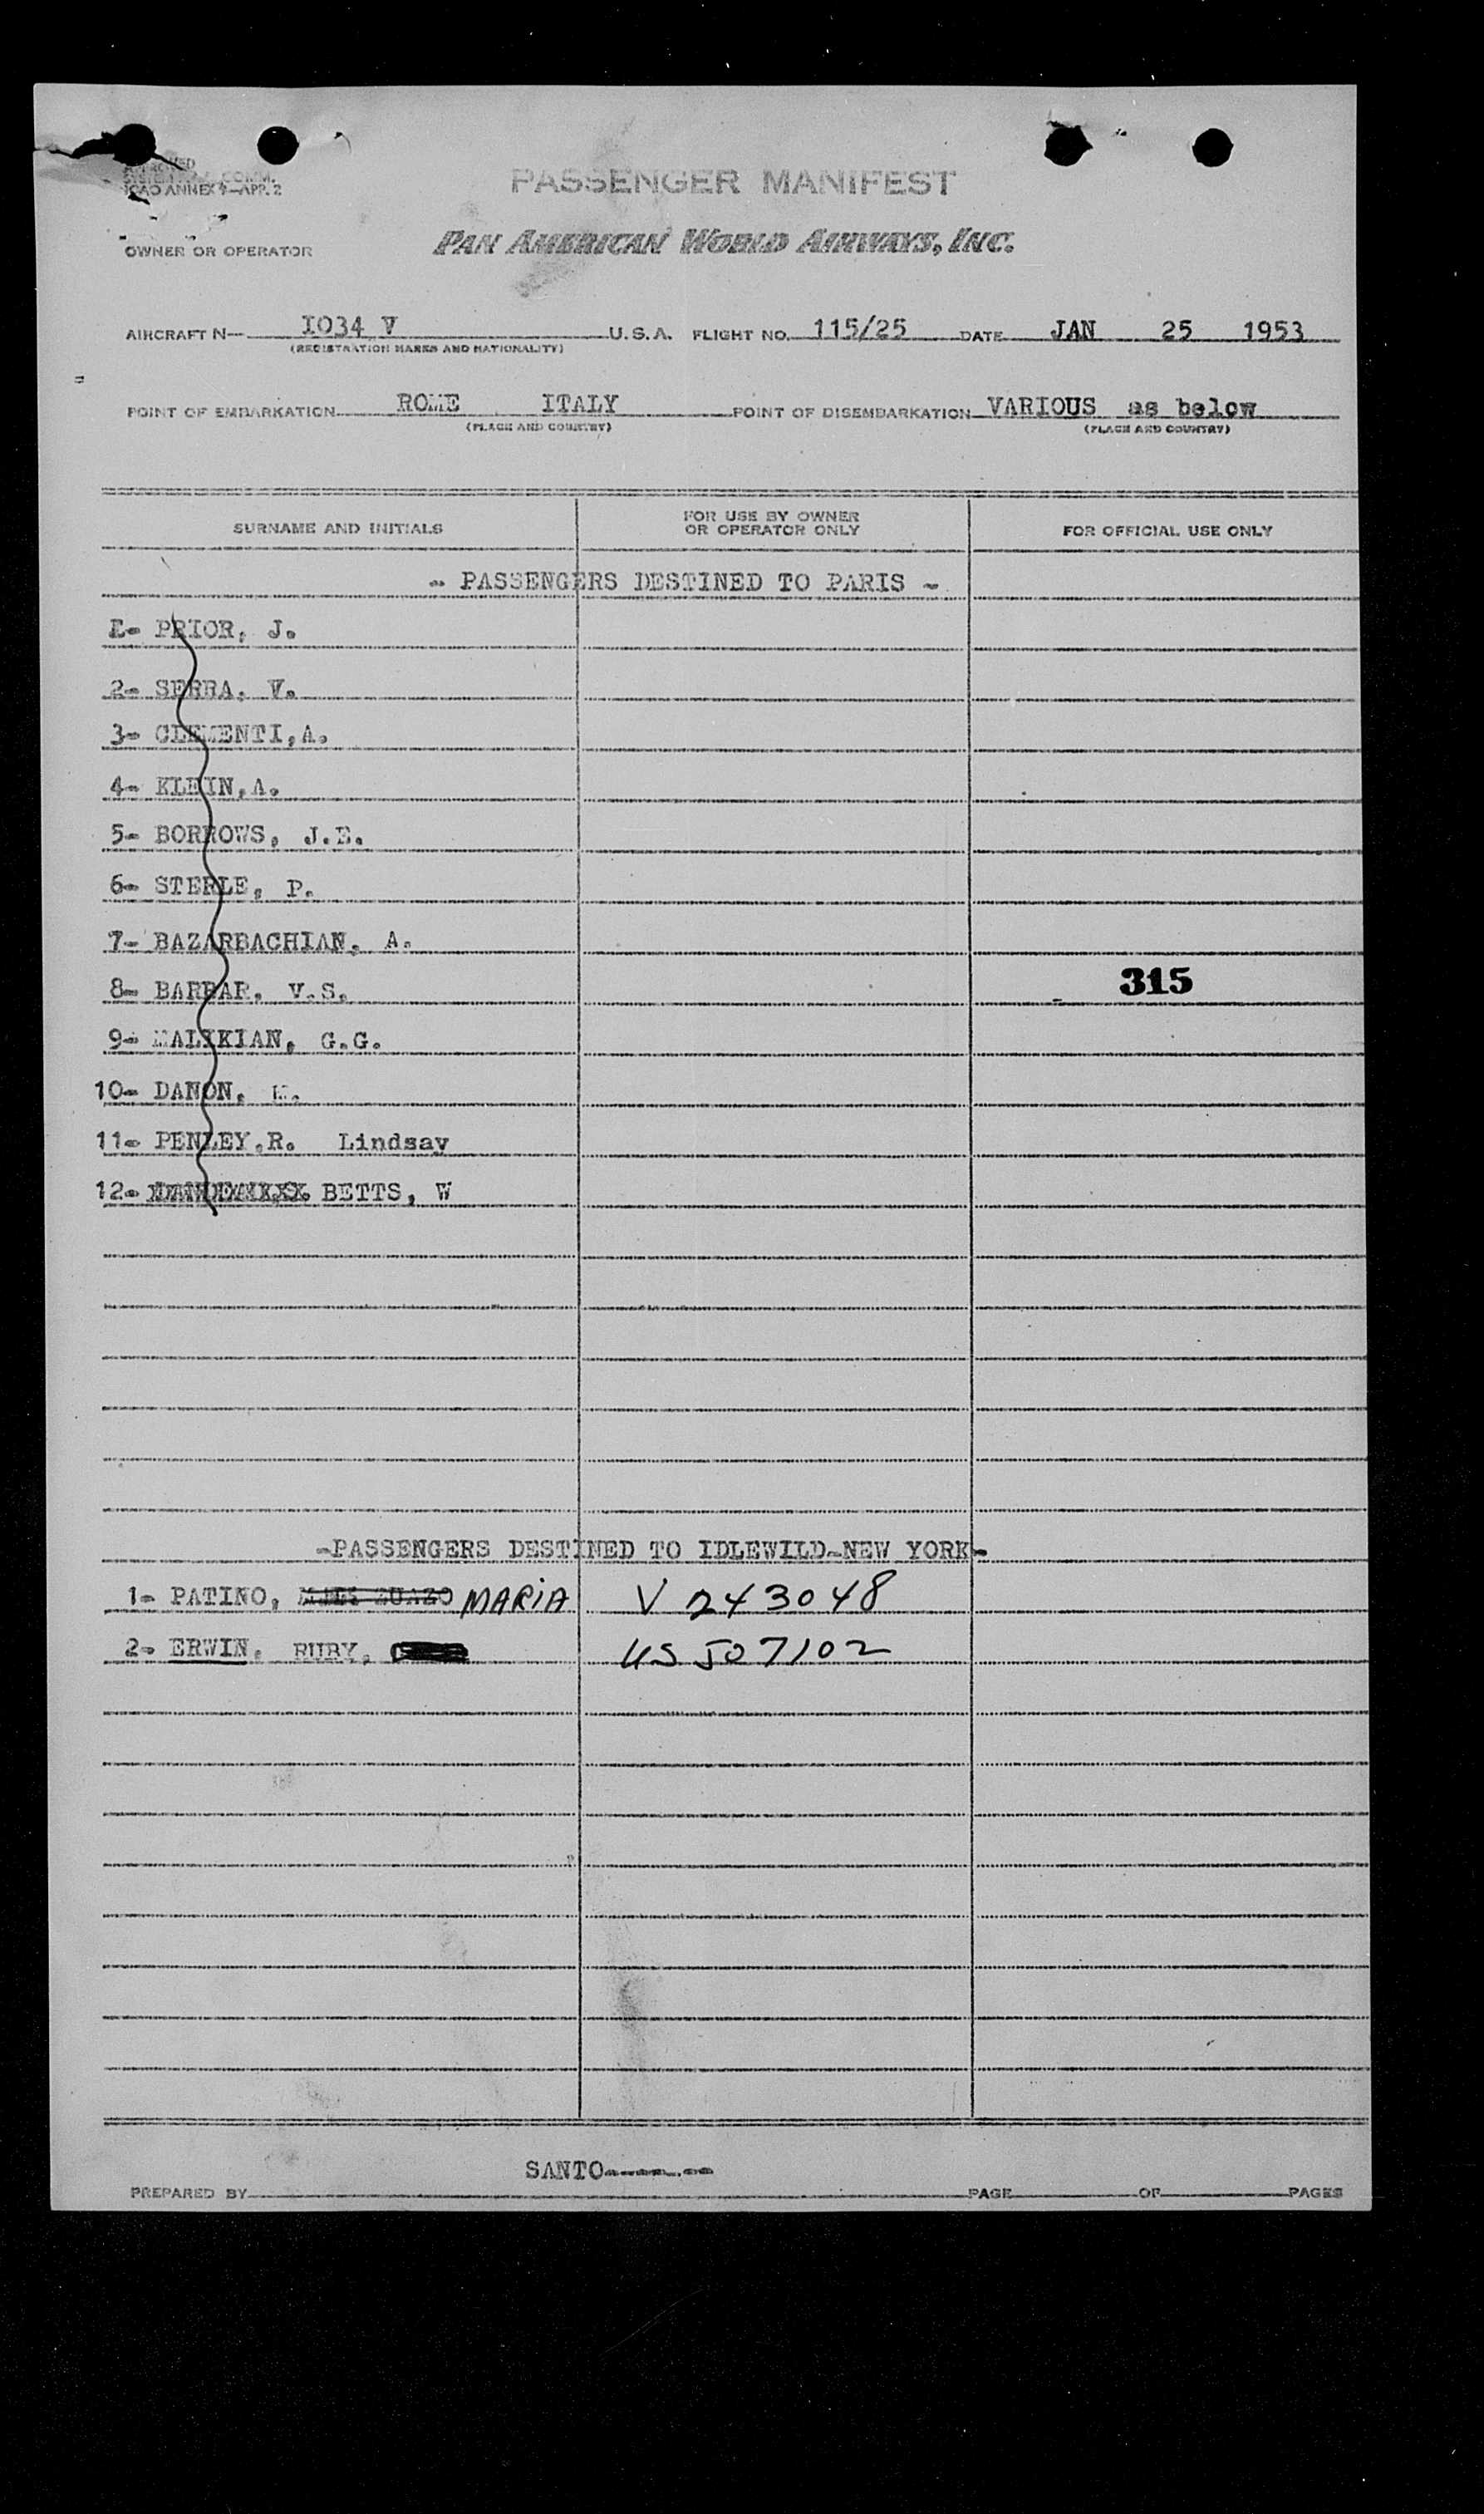 APPROVED
COMM.
ICAO ANNEX 9—APP. 2
PASSENGER MANIFEST
OWNER OR OPERATOR PAN AMERICAN WORLD AIRWAYS, INC.
AIRCRAFT N— 1034 V U.S.A. FLIGHT NO. 115/25 DATE JAN 25 1953
(REGISTRATION MARKS AND NATIONALITY)
POINT OF EMBARKATION ROME ITALY POINT OF DISEMBARKATION VARIOUS as below
(PLACE AND COUNTRY) (PLACE AND COUNTRY)
SURNAME AND INITIALS FOR USE BY OWNER OR OPERATOR ONLY FOR OFFICIAL USE ONLY
- PASSENGERS DESTINED TO PARIS -
1- PRIOR, J.
2- SERRA, V.
3- CLEMENTI,A.
4- KLEIN,A.
5- BORROWS, J.E.
6- STERLE, P.
7- BAZARBACHIAN, A.
8- BARBAR, V.S. 315
9- MALIKIAN, G.G.
10- DANON,
11- PENLEY,R. Lindsay
12- BETTS, W
-PASSENGERS DESTINED TO IDLEWILD-NEW YORK-
1- PATINO, MARIA V 243048
2- ERWIN, RUBY, US 507102
SANTO------.--
PREPARED BY PAGE OF PAGES